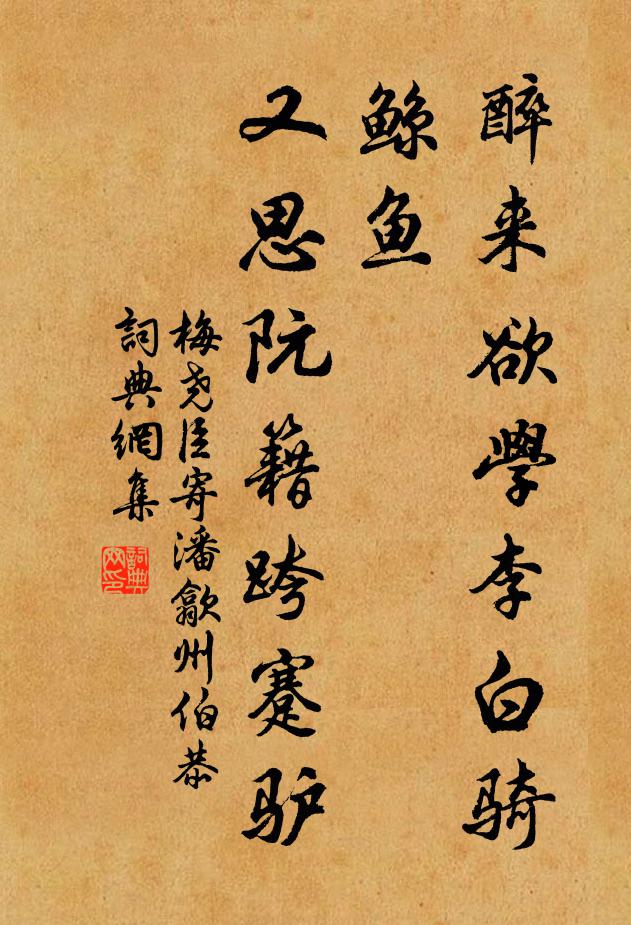 醉来欲學李白骑
鲸鱼
又思阮籍跨蹇驴
梅尧臣寄潘歙州伯恭
詞典網集
詞典網印